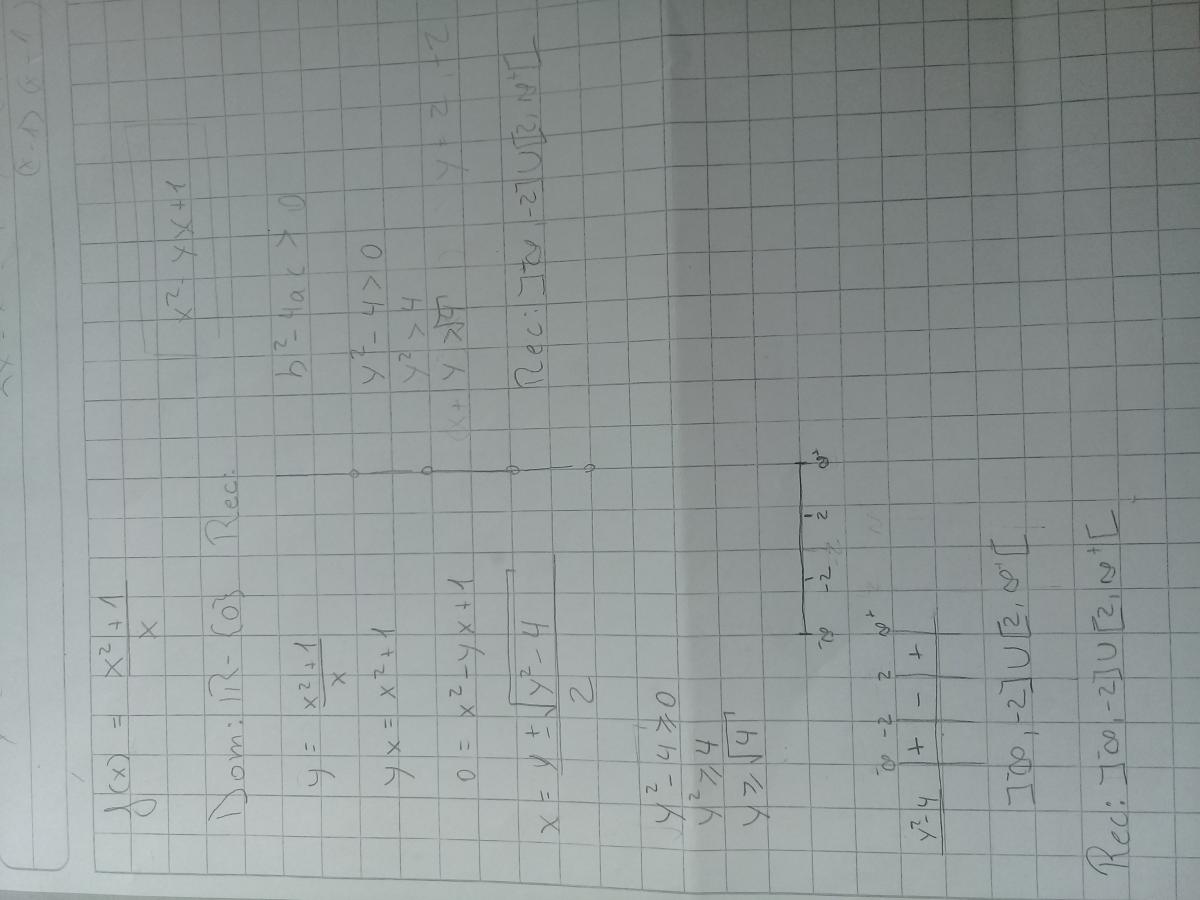 (x-1)(x-1)
f(x) = x²+1 / x
Dom: IR - {0} Rec:
y = x²+1 / x
yx = x²+1
0 = x² - yx + 1
x = y ± √y² - 4 / 2
y² - 4 ≥ 0
y² ≥ 4
y ≥ √4
∞ -2 2 ∞⁺
∞ -2 2 ∞⁺
y²-4 + - +
]∞, -2] U [2, ∞⁺[
Rec: ]∞, -2] U [2, ∞⁺[
x² - yx + 1
b² - 4ac > 0
y² - 4 > 0
y² > 4
y > √4
Rec: ]∞, -2] U [2, ∞⁺[